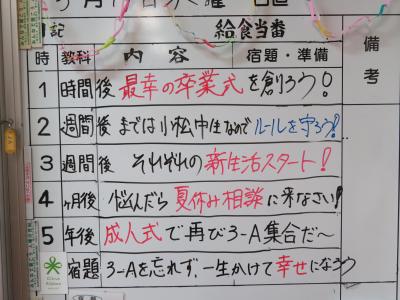 記 給食当番 備考
時 教科 内容 宿題・準備
1 時間後 最幸の卒業式を創ろう!
2 週間後 までは小松中生なのでルールを守ろう!
3 週間後 それぞれの新生活スタート!
4 ヶ月後 悩んだら夏休み相談に来なさい!
5 年後 成人式で再び3-A集合だ~
宿題 3-Aを忘れず、一生かけて幸せになろう